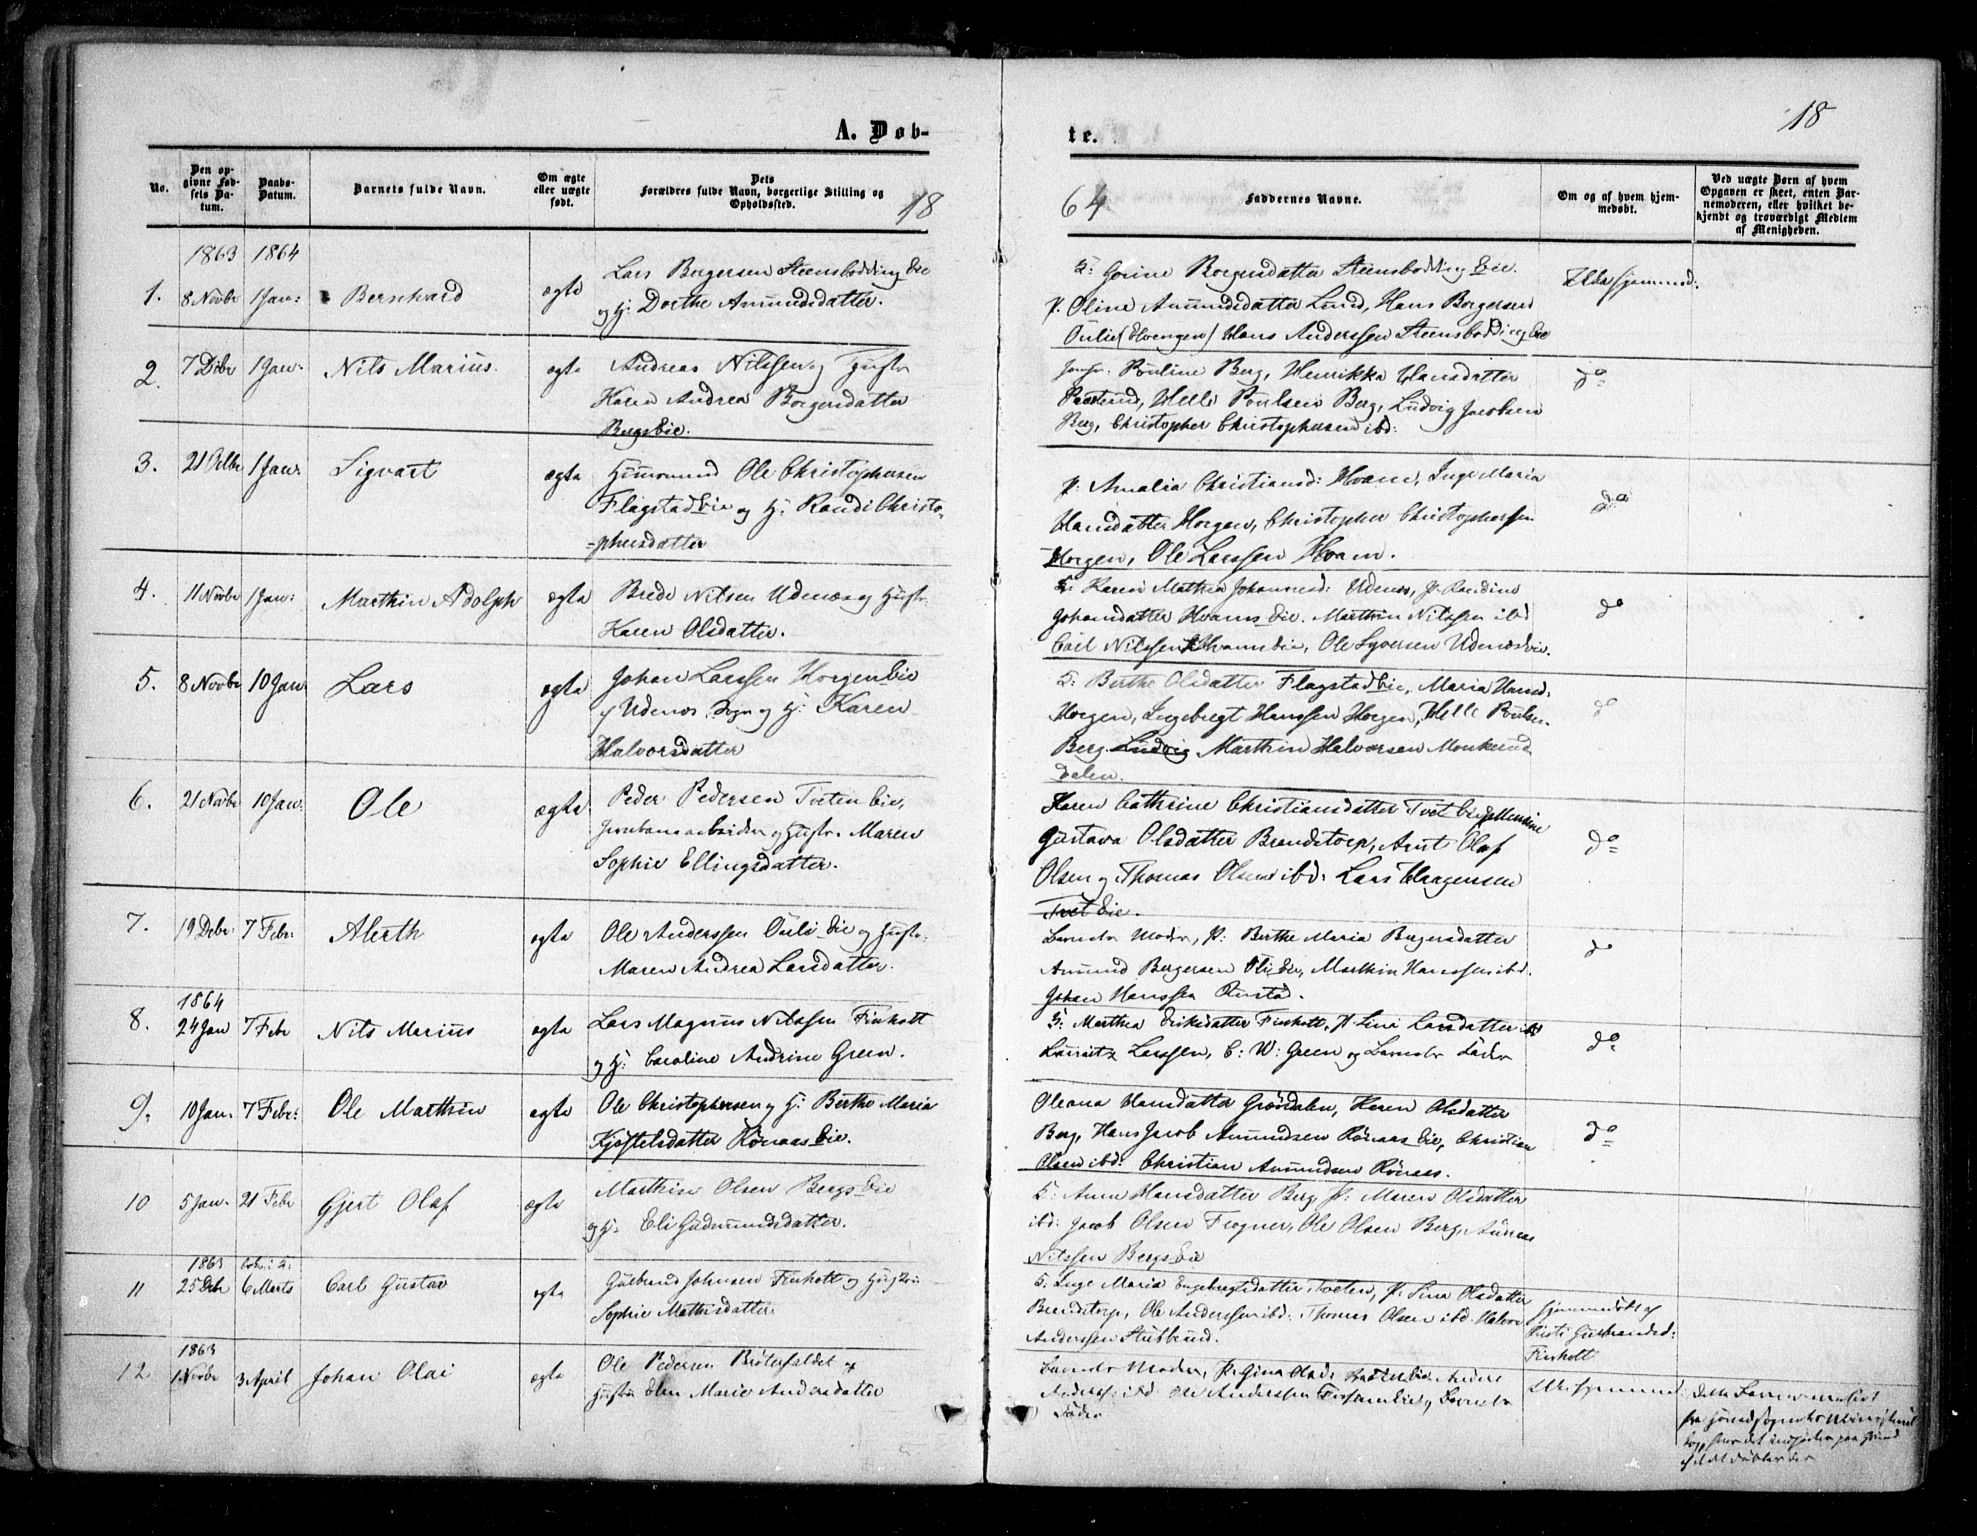 18
A. Døb-
te.
No.
Den op-
givne Fød-
sels Da-
tum.
Daabs-
Datum.
Barnets fulde Navn.
Om ægte
eller uægte
født.
Dets
Forældres fulde Navn, borgerlige Stilling og
Opholdssted.
18
64
Faddernes Navne.
Om og af hvem hjem-
medøbt.
Ved uægte Børn af hvem
Opgaven er skeet, enten Bar-
nemoderen, eller hvilket be-
kjendt og troværdigt Medlem
af Menigheden.
1863 1864
1. 8 Novbr 1 Jan: Bernhard ægte
Lars Borgersen Steensbødding Eie
og H: Dorthe Amundsdatter.
F: Gorine Borgersdatter Steensbødding Eie.
P. Oline Amundsdatter Lund, Hans Borgersen
Oulie (Hoengen) Hans Anderssen Steensbødding Eie
Ikke hjemmed:
2. 7 Dcbr 1 Jan. Nils Marius. ægte
Andreas Nilssen og Hustr
Karen Andrea Borgersdatter
Bergs Eie.
Jomfr: Pouline Berg, Henrikka Hansdatter
Helle Poulsen Berg, Ludvig Jacobsen
Berg, Christopher Christophersen ibd:
do
3. 21 Octbr 1 Jan. Sigvart ægte
Ole Christophersen
Flagstad Eie og H: Randi Christo-
-phersdatter
P: Amalia Christiansd: Hvam, Inge Maria
Hansdatter Horgen, Christopher Christophersen
Horgen, Ole Larssen Hvam.
do
4. 11 Novbr 1 Jan: Marthin Adolph ægte
Brede Nilsen Udenes og Hustr:
Karen Olsdatter.
F: Karen Mathea Johannesd: Udenes, P. Randine
Johansdatter Hvams Eie. Marthin Nilssen ibd
Carl Nilssen Hvams Eie, Ole Syversen Udenes Eie.
do
5. 8 Novbr 10 Jan Lars ægte
Johan Larssen Horgen Eie
i Udenes Sogn og H: Karen
Halvorsdatter
F: Berthe Olsdatter Flagstad Eie, Maria Hansd:
Horgen, Ingebregt Hanssen Horgen, Helle Poulsen
Berg Ludvig Marthin Halvorsen Monkerud
dalen.
do
6. 21 Novbr 10 Jan. Ole ægte
Peder Pedersen Tveten Eie,
Jernbanearbeider og Hustr. Maren
Sophie Ellingsdatter.
Karen Cathrine Christiansdatter Tvet Eie,
Gustava Olsdatter Brendstorp, Arnt Olaf
Olsen og Thomas Olsen ibd: Lars Haagensen
Tvet Eie.
do
7. 19 Dcbr: 7 Febr: Alerth ægte
Ole Anderssen Ouli Eie og Hustr:
Maren Andrea Larsdatter.
Barnets Moder, P: Berthe Maria Borgersdatter
Amund Borgersen Oli Eie, Marthin Hanssen ibd.
Johan Hanssen Rustad.
do
1864
8. 24 Jan 7 Febr Nils Marius ægte
Lars Magnus Nilssen Finholt
og H: Caroline Andrine Green.
F: Marthea Eriksdatter Finholt, P. Lina Larsdatter ibd
Lauritz Larssen, C: W: Green og Barnets Fader
do
9. 10 Jan. 7 Febr: Ole Marthin ægte
Ole Christophersen og H: Berthe Maria
Kjøstelsdatter Rønaas Eie.
Oleana Hansdatter Grøndalen, Karen Olsdatter
Berg, Hans Jacob Amundsen Rønaas Eie, Christian
Olsen ibd: Christian Amundsen Rønaas.
do
10 5 Jan. 21 Febr Gjert Olaf ægte
Marthin Olsen Bergs Eie
og H. Eli Gudmundsdatter.
F: Anne Hansdatter Berg P: Maren Olsdatter
ibd: Jacob Olsen Frogner, Ole Olsen Berg, Andreas
Nilssen Bergs Eie
1863
11 25 Dcbr 6 Marts Carl Gustav ægte
Gulbrand Johnsen Finholt og Hustru
Sophie Mathisdatter
F: Inge Maria Engebregtsdatter Tveten, P. Lina Olsdatter
Brendstorp, Ole Anderssen ibd. Thomas Olsen ibd Halvor
Anderssen Stubberud.
hjemmedøbt af
Kirsti Gulbrandsd:
Finholt
1863
12 1 Novbr 3 April Johan Olai ægte
Ole Pedersen Bröterfaldet og
Hustru Elen Marie Andersdatter
Barnets Moder, P. Gina Olsd: Anders
Anders: ibd Ole Anderssen og Barnets
Fader
Ikke hjemmed:
Dette Barn er